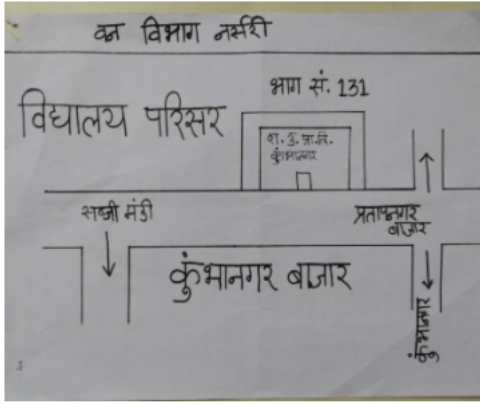 वन विभाग नर्सरी
भाग सं. 131
विद्यालय परिसर
रा. उ. प्रा. वि.
कुंभानगर
सब्जी मंडी
प्रतापनगर
बाजार
कुंभानगर बाजार
कुंभानगर